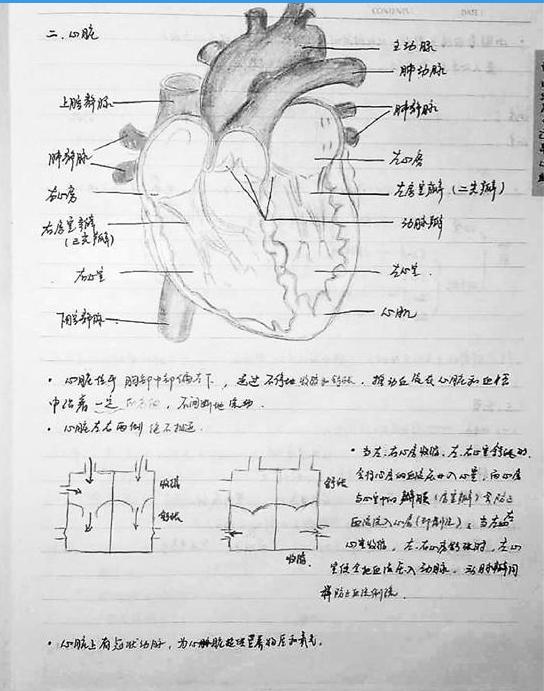 CONTENTS:
DATE:
二、心脏
主动脉
肺动脉
上腔静脉
肺静脉
肺静脉
左心房
右心房
左房室瓣（二尖瓣）
右房室瓣
（三尖瓣）
动脉瓣
右心室
左心室
下腔静脉
心肌
· 心脏位于胸部中部偏左下，通过不停地收缩和舒张，推动血液在心脏和血管
中沿着一定的方向，不间断地流动.
· 心脏左右两侧绝不相通.
收缩
舒张
舒张
收缩
· 当左、右心房收缩，左、右心室舒张时，
会将心房的血液压入心室，而心房
与心室中的瓣膜（房室瓣）会防止
血液流入心房（即倒流）；当左右
心室收缩，左、右心房舒张时，左心
室便会把血液压入动脉，动脉瓣同
样防止血液倒流.
· 心脏上有冠状动脉，为心脏提供营养物质和氧气.